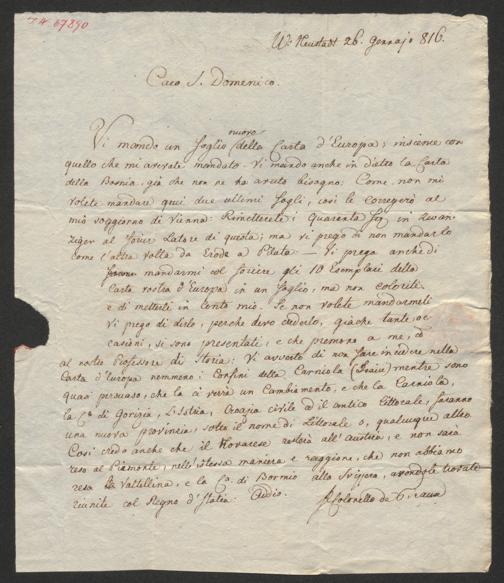 IN 67890
Wr Neustadt 26. Gennajo 816.
Caro S. Domenico.
nuovo
Vi mando un foglio della Carta d'Europa; insieme con
quello che mi avevate mandato. Vi mando anche in dietro la Carta
della Bosnia, già che non ne ho avuto bisogno. Come non mi
volete mandare quei due ultimi fogli, così li correggerò al
mio soggiorno di Vienna. Rimetterete i quaranta in Zwan-
ziger al Latore di questa; ma vi prego di non mandarlo
come l'altra volta da Erode a Pilato. — Vi prego anche di
mandarmi col gli 10 Esemplari della
Carta vostra d'Europa in un foglio, ma non colorite
e di metterli in conto mio. Se non volete mandarmeli
Vi prego di dirlo, perche devo crederlo, giache tante oc-
casioni, si sono presentati, e che premono a me, ed
al nostro Professore di Storia: Vi avverto di non fare incidere nella
Carta d'Europa nemmeno i Confini della Carniola mentre sono
quasi persuaso, che la ci verrà un Cambiamento, e che la Carniola,
la Ca. di Gorizia, L'Istria, Croazia civile ed il antico Littorale, faranno
una nuova provincia, sotto il nome di Littorale o, qualunque altro
Così credo anche che il Novarese resterà all'Austria, e non sarà
reso al Piemonte, nell'istessa maniera e raggione, che non abbiamo
resa la Valtellina, e la Ca. di Bormio alla Svizzera, avendole trovate
riunite col Regno d'Italia. Addio.
Colonello de